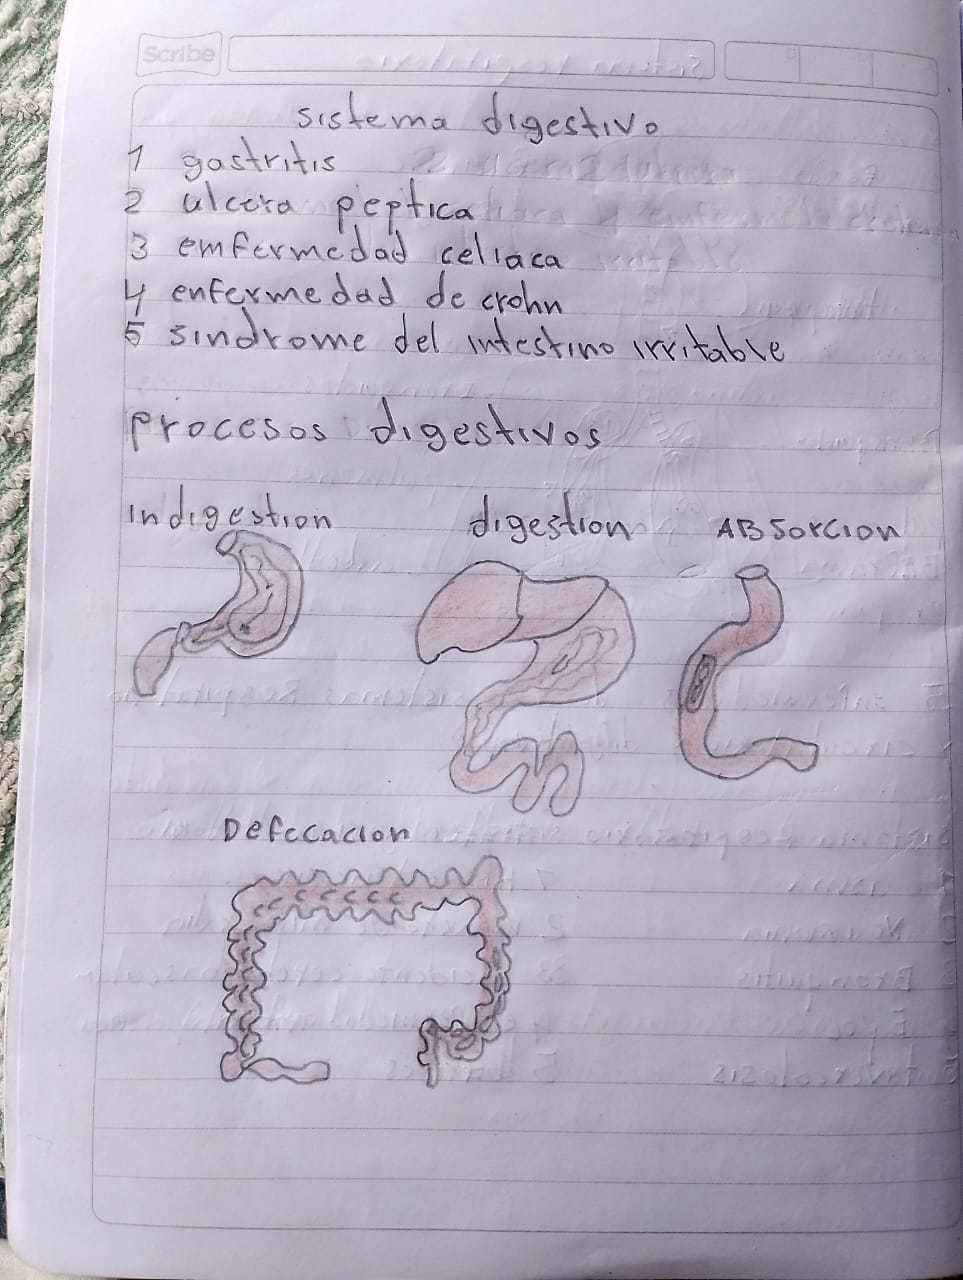 Scribe
sistema digestivo
1 gastritis
2 ulcera peptica
3 emfermedad celiaca
4 enfermedad de crohn
5 sindrome del intestino irritable
procesos digestivos
indigestion digestion ABSorcion
Defecacion